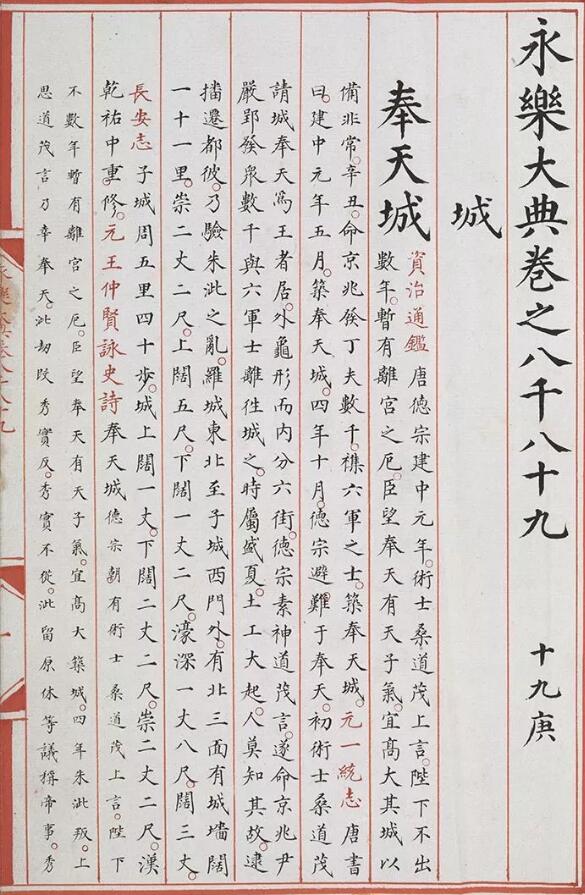 永樂大典卷之八千八十九 十九庚
城
奉天城
資治通鑑唐德宗建中元年。術士桑道茂上言。陛下不出
數年。暫有離宮之厄。臣望奉天有天子氣。宜高大其城以
備非常。辛丑。命京兆發丁夫數千。襍六軍之士。築奉天城。元一統志唐書
曰。建中元年五月。築奉天城。四年十月。德宗避難于奉天。初術士桑道茂
請城奉天爲王者居。外龜形而內分六街。德宗素神道茂言。遂命京兆尹
嚴郢發衆數千與六軍士離徃城之。時屬盛夏。土工大起。人莫知其故。逮
播遷都彼。乃驗朱泚之亂。羅城東北至子城西門外。有北三面有城墻闊
一十一里。崇二丈二尺。上闊五尺。下闊一丈二尺。濠深一丈八尺。闊三丈。
長安志子城周五里四十步。城上闊一丈。下闊二丈二尺。崇二丈二尺。漢
乾祐中重修。元王仲賢詠史詩奉天城德宗朝有術士桑道茂上言。陛下
不數年暫有離宮之厄。臣望奉天有天子氣。宜高大築城。四年朱泚叛。上
思道茂言乃幸奉天。泚劫段秀實反。秀實不從。泚留原休等議稱帝事。秀